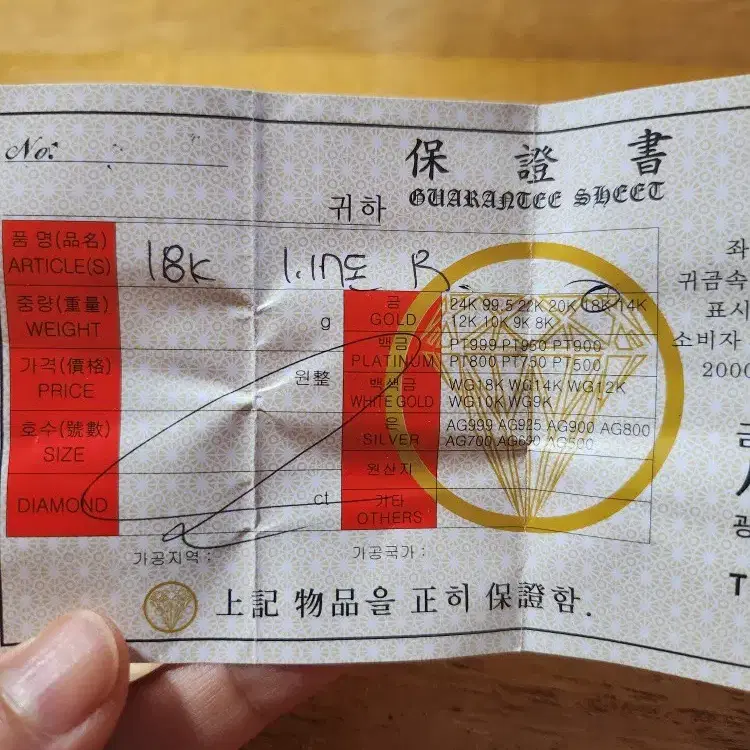 No.
保證書
GUARANTEE SHEET
귀하
품명(品名)
ARTICLE(S)
18K 1.17돈 R
중량(重量)
WEIGHT
g
가격(價格)
PRICE
원整
호수(號數)
SIZE
DIAMOND
ct
금
GOLD
24K 99.5 22K 20K 18K 14K
12K 10K 9K 8K
백금
PLATINUM
PT999 PT950 PT900
PT800 PT750 PT500
백색금
WHITE GOLD
WG18K WG14K WG12K
WG10K WG9K
은
SILVER
AG999 AG925 AG900 AG800
AG700 AG600 AG500
원산지
기타
OTHERS
가공지역 :
가공국가 :
上記 物品을 正히 保證함.
좌
귀금속
표시
소비자
2000
금
광
T